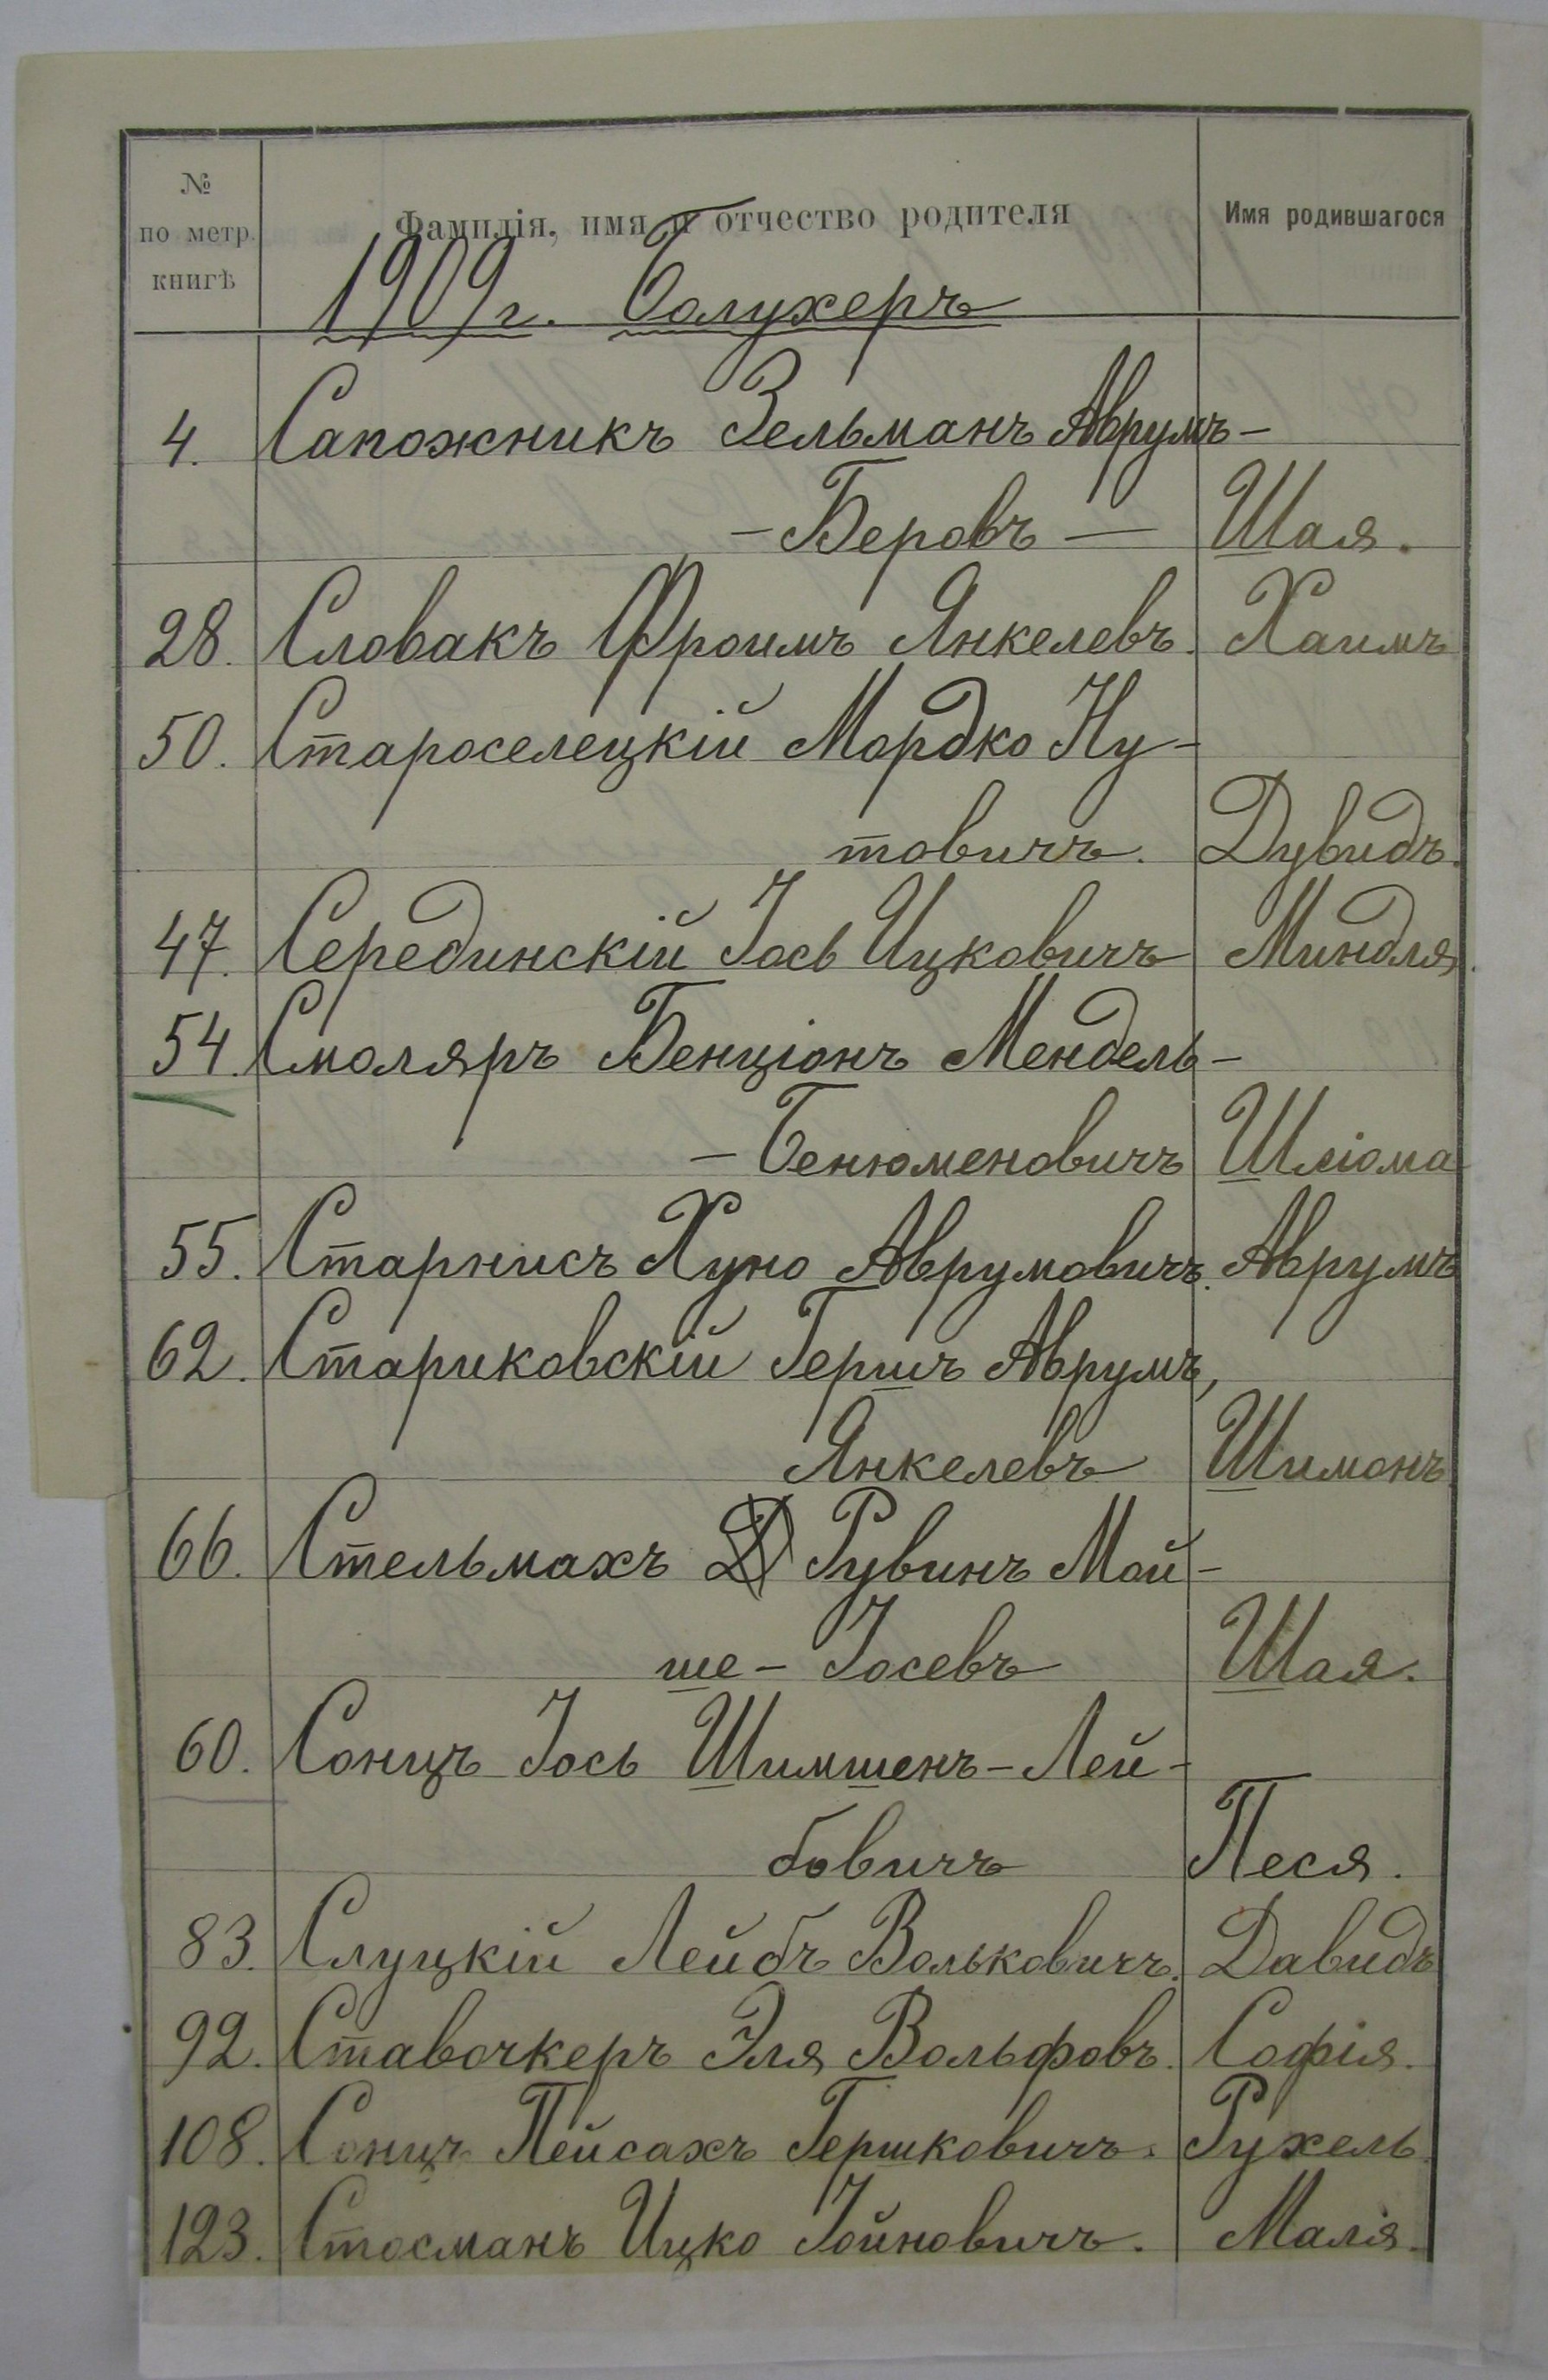 №
по метр.
книгѣ
Фамилія, имя и отчество родителя
Имя родившагося
1909 г. Болухеръ
4. Сапожникъ Зельманъ Аврумъ-
-Беровъ — Шая.
28. Словакъ Фроимъ Янкелевъ. Хаимъ
50. Староселецкій Мордко Ну-
товичъ. Дувидъ.
47. Серединскій Іось Ицковичъ Миндля.
54. Смоляръ Бенціонъ Мендель-
-Бенюменовичъ Шліома
55. Старнисъ Хуно Аврумовичъ. Аврумъ
62. Стариковскій Гершъ Аврумъ,
Янкелевъ Шимонъ
66. Стельмахъ Рувинъ Мой-
ше- Іосевъ Шая.
60. Сонцъ Іось Шимшенъ-Лей-
бовичъ Песя.
83. Слуцкій Лейбъ Вольковичъ. Давидъ
92. Ставочкеръ Эля Вольфовъ. Софія.
108. Сонцъ Пейсахъ Гершковичъ. Рухель
123. Стосманъ Ицко Іойновичъ. Малія.